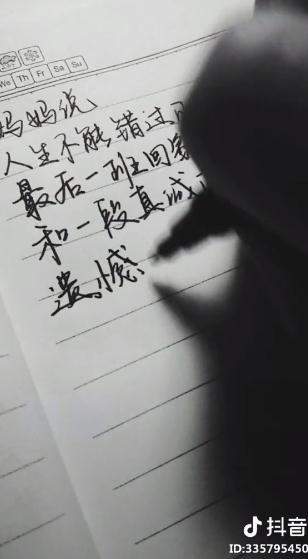 We Th Fr Sa Su
妈妈说
人生不能错过
最后一班回家
和一段真诚
遗憾
抖音
ID:335795450